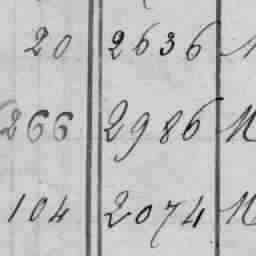 20 2636
266 2986 M
104 2074 M